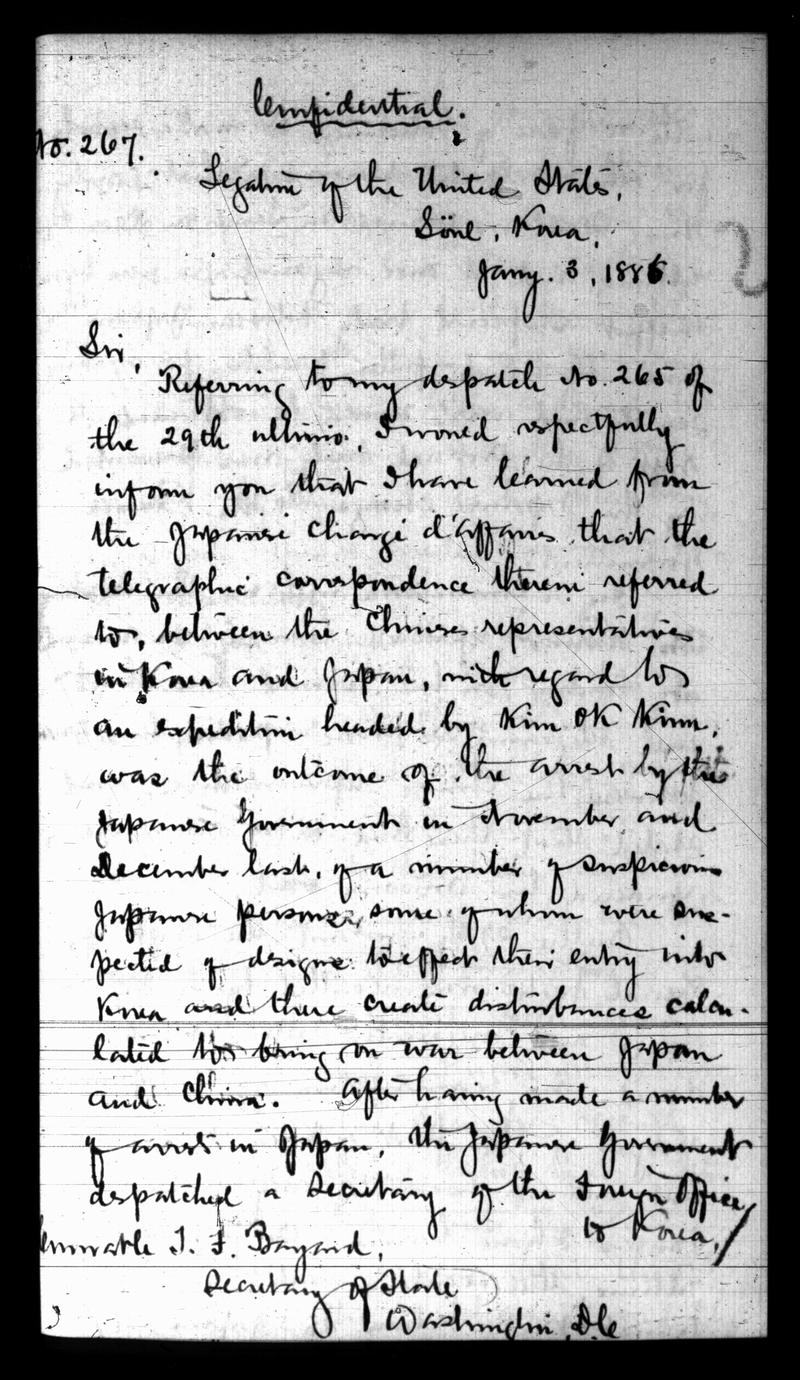 Confidential.
No. 267.
Legation of the United States,
Söul, Korea,
Jany. 3, 1886.
Sir,
Referring to my despatch No. 265 of
the 29th ultimo, I would respectfully
inform you that I have learned from
the Japanese Chargé d'affaires that the
telegraphic correspondence therein referred
to, between the Chinese representatives
in Korea and Japan, with regard to
an expedition headed by Kim OK Kiun,
was the outcome of the arrest by the
Japanese Government in November and
December last, of a number of suspicious
Japanese persons, some of whom were sus-
pected of designs to effect their entry into
Korea and there create disturbances calcu-
lated to bring on war between Japan
and China. After having made a number
of arrests in Japan, the Japanese Government
despatched a Secretary of the Foreign Office
to Korea,/
Honorable T. F. Bayard,
Secretary of State
Washington, D.C.